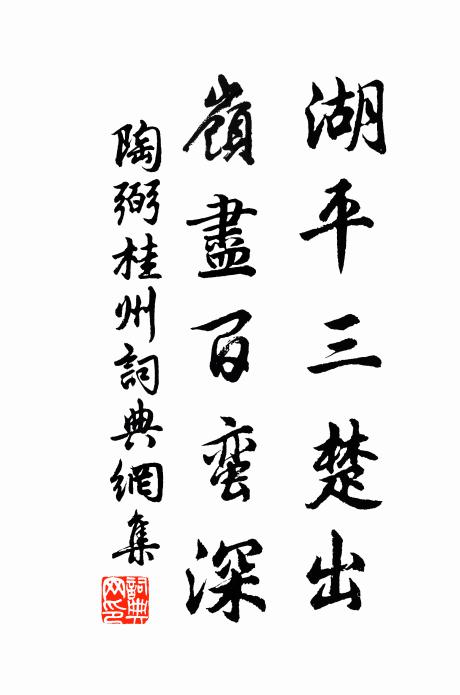 湖平三楚出
嶺盡百蛮深
陶弼桂州詞典網集
詞典
网印